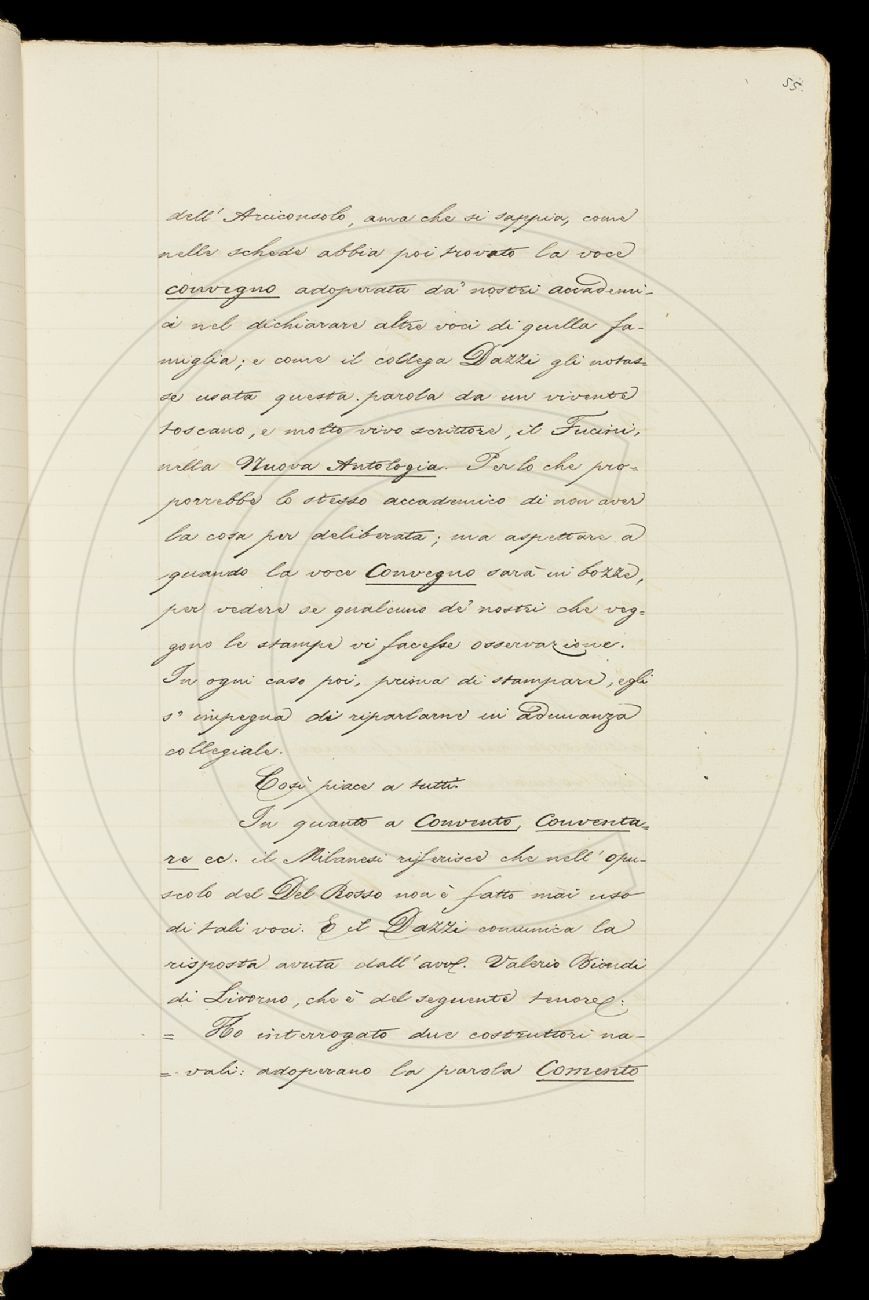 55.
dell' Arciconsolo, ama che si sappia, come
nelle schede abbia poi trovato la voce
convegno adoperata da' nostri accademi-
ci nel dichiarare altre voci di quella fa-
miglia; e come il collega Dazzi gli notas-
se usata questa parola da un vivente
toscano, e molto vivo scrittore, il Fucini,
nella Nuova Antologia. Per lo che pro-
porrebbe lo stesso accademico di non aver
la cosa per deliberata; ma aspettare a
quando la voce Convegno sarà in bozze,
per vedere se qualcuno de' nostri che veg-
gono le stampe vi facesse osservazione.
In ogni caso poi, prima di stampare, egli
s' impegna di riparlarne in adunanza
collegiale.
Così piace a tutti.
In quanto a Convento, Conventa-
re ec. il Milanesi riferisce che nell' opu-
scolo del Del Rosso non è fatto mai uso
di tali voci. E il Dazzi comunica la
risposta avuta dall' avv. Valerio Biondi
di Livorno, che è del seguente tenore:
= Ho interrogato due costruttori na-
= vali: adoperano la parola Comento